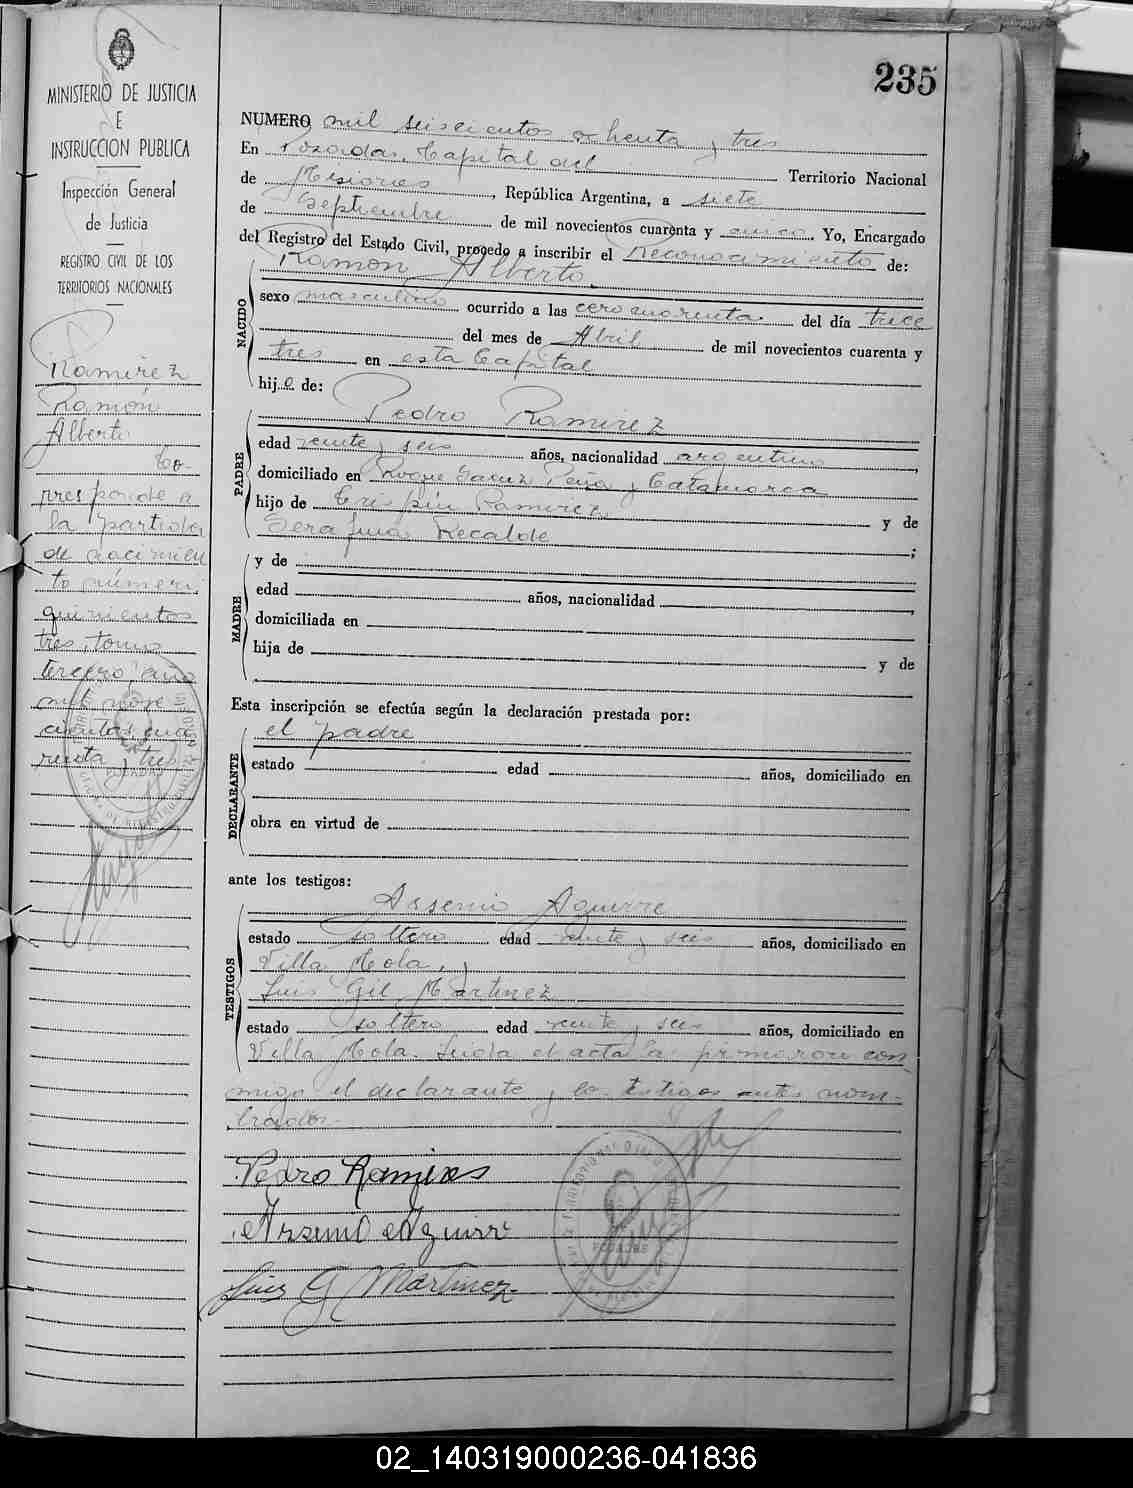 235
MINISTERIO DE JUSTICIA
E
INSTRUCCION PUBLICA
Inspección General
de Justicia
REGISTRO CIVIL DE LOS
TERRITORIOS NACIONALES
Ramirez
Ramón
Alberto
Co-
rresponde a
la partida
de nacimien
to número
quinientos
tres, tomo
tercero, año
mil nove
cientos cua
renta y tres
NUMERO mil seiscientos ochenta y tres
En Posadas, Capital del Territorio Nacional
de Misiones, República Argentina, a siete
de Septiembre de mil novecientos cuarenta y cinco. Yo, Encargado
del Registro del Estado Civil, procedo a inscribir el Reconocimiento de:
Ramón Alberto
NACIDO
sexo masculino ocurrido a las cero cuarenta del día trece
del mes de Abril de mil novecientos cuarenta y
tres en esta Capital
hijo de:
Pedro Ramirez
PADRE
edad veinte y seis años, nacionalidad argentino,
domiciliado en Roque Saenz Peña y Catamarca
hijo de Crispin Ramirez y de
Serafina Recalde;
MADRE
y de
edad años, nacionalidad
domiciliada en
hija de y de
Esta inscripción se efectúa según la declaración prestada por:
el padre
DECLARANTE
estado edad años, domiciliado en
obra en virtud de
ante los testigos:
TESTIGOS
Arsenio Aguirre
estado soltero edad veinte y seis años, domiciliado en
Villa Mola, y
Luis Gil Martinez
estado soltero edad veinte y seis años, domiciliado en
Villa Mola. Leida el acta la firmaron con
migo el declarante y los testigos antes nom-
brados.
Pedro Ramires
Arsenio Aguirre
Luis G Martinez
POSADAS
02_140319000236-041836